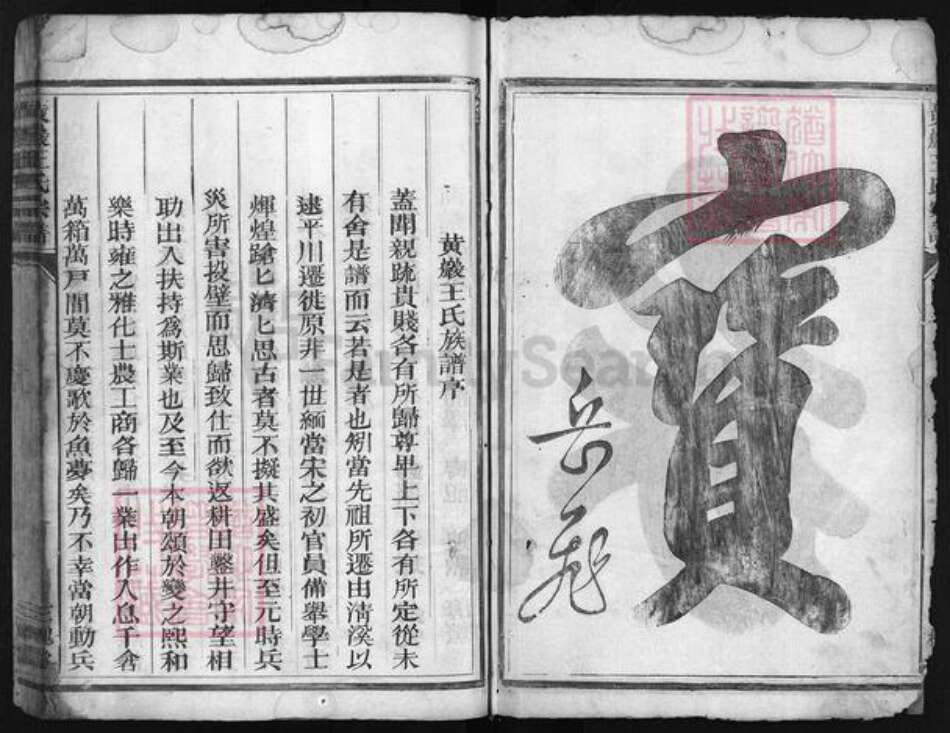 寳
岳飛
黄巖王氏族譜序
蓋聞親疏貴賤各有所歸尊卑上下各有所定從未
有舍是譜而云若是者也矧當先祖所遷由清溪以
逮平川遷徙原非一世緬當宋之初官員備舉學士
煇煌蹌匕濟匕思古者莫不擬其盛矣但至元時兵
災所害投壁而思歸致仕而欲返耕田鑿井守望相
助出入扶持爲斯業也及至今本朝頌於變之熙和
樂時雍之雅化士農工商各歸一業出作入息千倉
萬箱萬戸間莫不慶歌於魚夢矣乃不幸當朝動兵